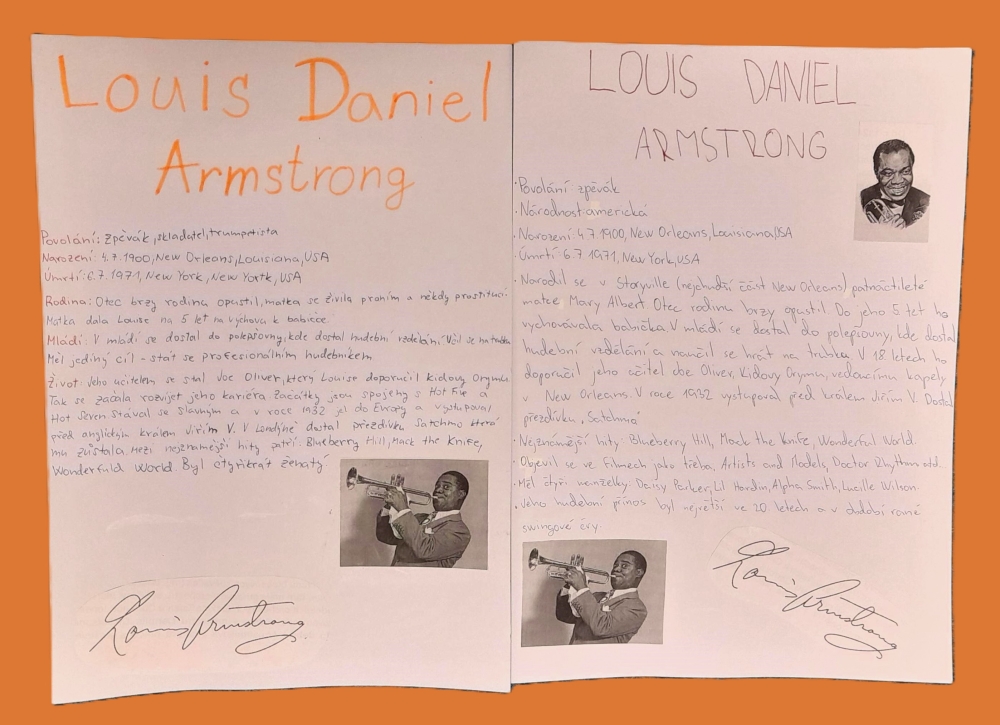 Louis Daniel
Armstrong
Povolání: Zpěvák, skladatel, trumpetista
Narození: 4.7.1900, New Orleans, Louisiana, USA
Úmrtí: 6.7.1971, New York, New York, USA
Rodina: Otec brzy rodinu opustil, matka se živila praním a někdy prostitucí
Matka dala Louise na 5 let na výchovu k babičce
Mládí: V mládí se dostal do polepšovny, kde dostal hudební vzdělání. Učil se na
Měl jediný cíl - stát se profesionálním hudebníkem
Život: Jeho učitelem se stal Joe Oliver, který Louise doporučil Kidovy Orymu
Tak se začala rozvíjet jeho kariéra. Začátky jsou spojeny s Hot Five a
Hot Seven. Stával se slavným a v roce 1932 jel do Evropy a vystupoval
před anglickým králem Jiřím V. V Londýně dostal přezdívku Satchmo která
mu zůstala. Mezi nejznámější hity patří: Blueberry Hill, Mack the Knife,
Wonderfuld World. Byl čtyřikrát ženatý
Louis Armstrong
LOUIS DANIEL
ARMSTRONG
• Povolání: zpěvák
• Národnost: americká
• Narození: 4.7.1900, New Orleans, Louisiana, USA
• Úmrtí: 6.7.1971, New York, USA
• Narodil se v Storyville (nejchudší část New Orleans) patnáctileté
matce Mary Albert. Otec rodinu brzy opustil. Do jeho 5 let ho
vychovávala babička. V mládí se dostal do polepšovny, kde dostal
hudební vzdělání a naučil se hrát na trubku. V 18 letech ho
doporučil jeho učitel Joe Oliver, Kidovy Orymu, vedoucímu kapely
v New Orleans. V roce 1932 vystupoval před králem Jiřím V. Dostal
přezdívku „Satchmo“
• Nejznámější hity: Blueberry Hill, Mack the Knife, Wonderful World.
• Objevil se ve filmech jako třeba, Artists and Models, Doctor Rhythm atd.
• Měl čtyři manželky: Daisy Parker, Lil Hardin, Alpha Smith, Lucille Wilson.
• Jeho hudební přínos byl největší ve 20 letech a v období rané
swingové éry.
Louis Armstrong